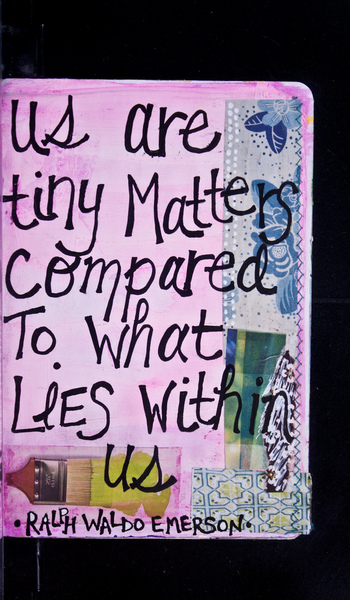 us are
tiny Matters
compared
To what
LiES within
us
• RALPH WALDO EMERSON •